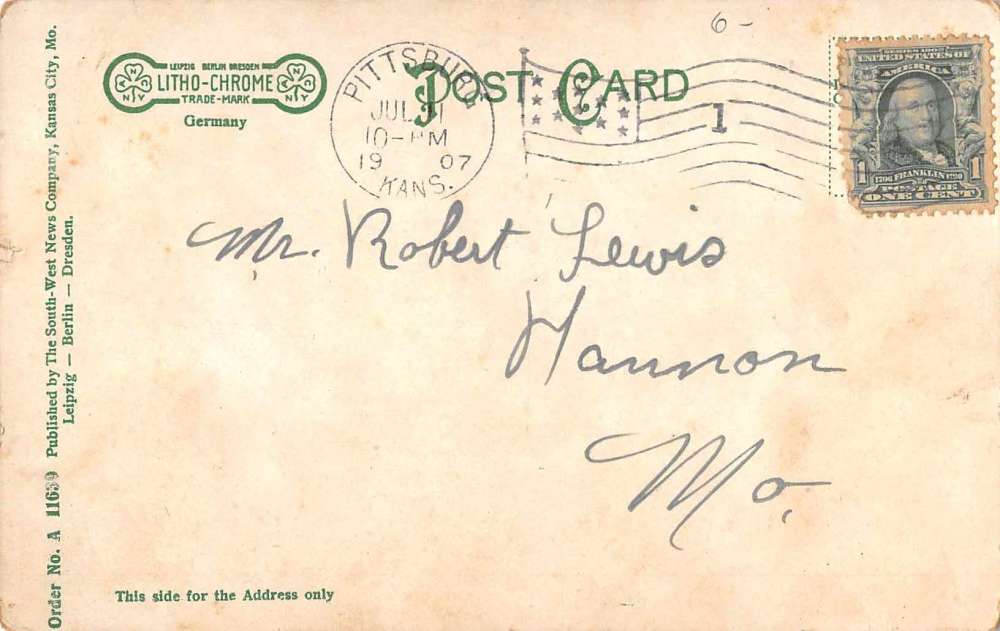 6-
LEIPZIG BERLIN DRESDEN
LITHO-CHROME
TRADE-MARK
N Y
N Y
Germany
POST CARD
PITTSBURG
JUL
10-PM
19 07
KANS.
1
UNITED STATES OF
AMERICA
1 1
1706 FRANKLIN 1790
POSTAGE
ONE CENT
Mr. Robert Lewis
Hannon
Mo.
This side for the Address only
Order No. A 11639 Published by The South-West News Company, Kansas City, Mo.
Leipzig — Berlin — Dresden.